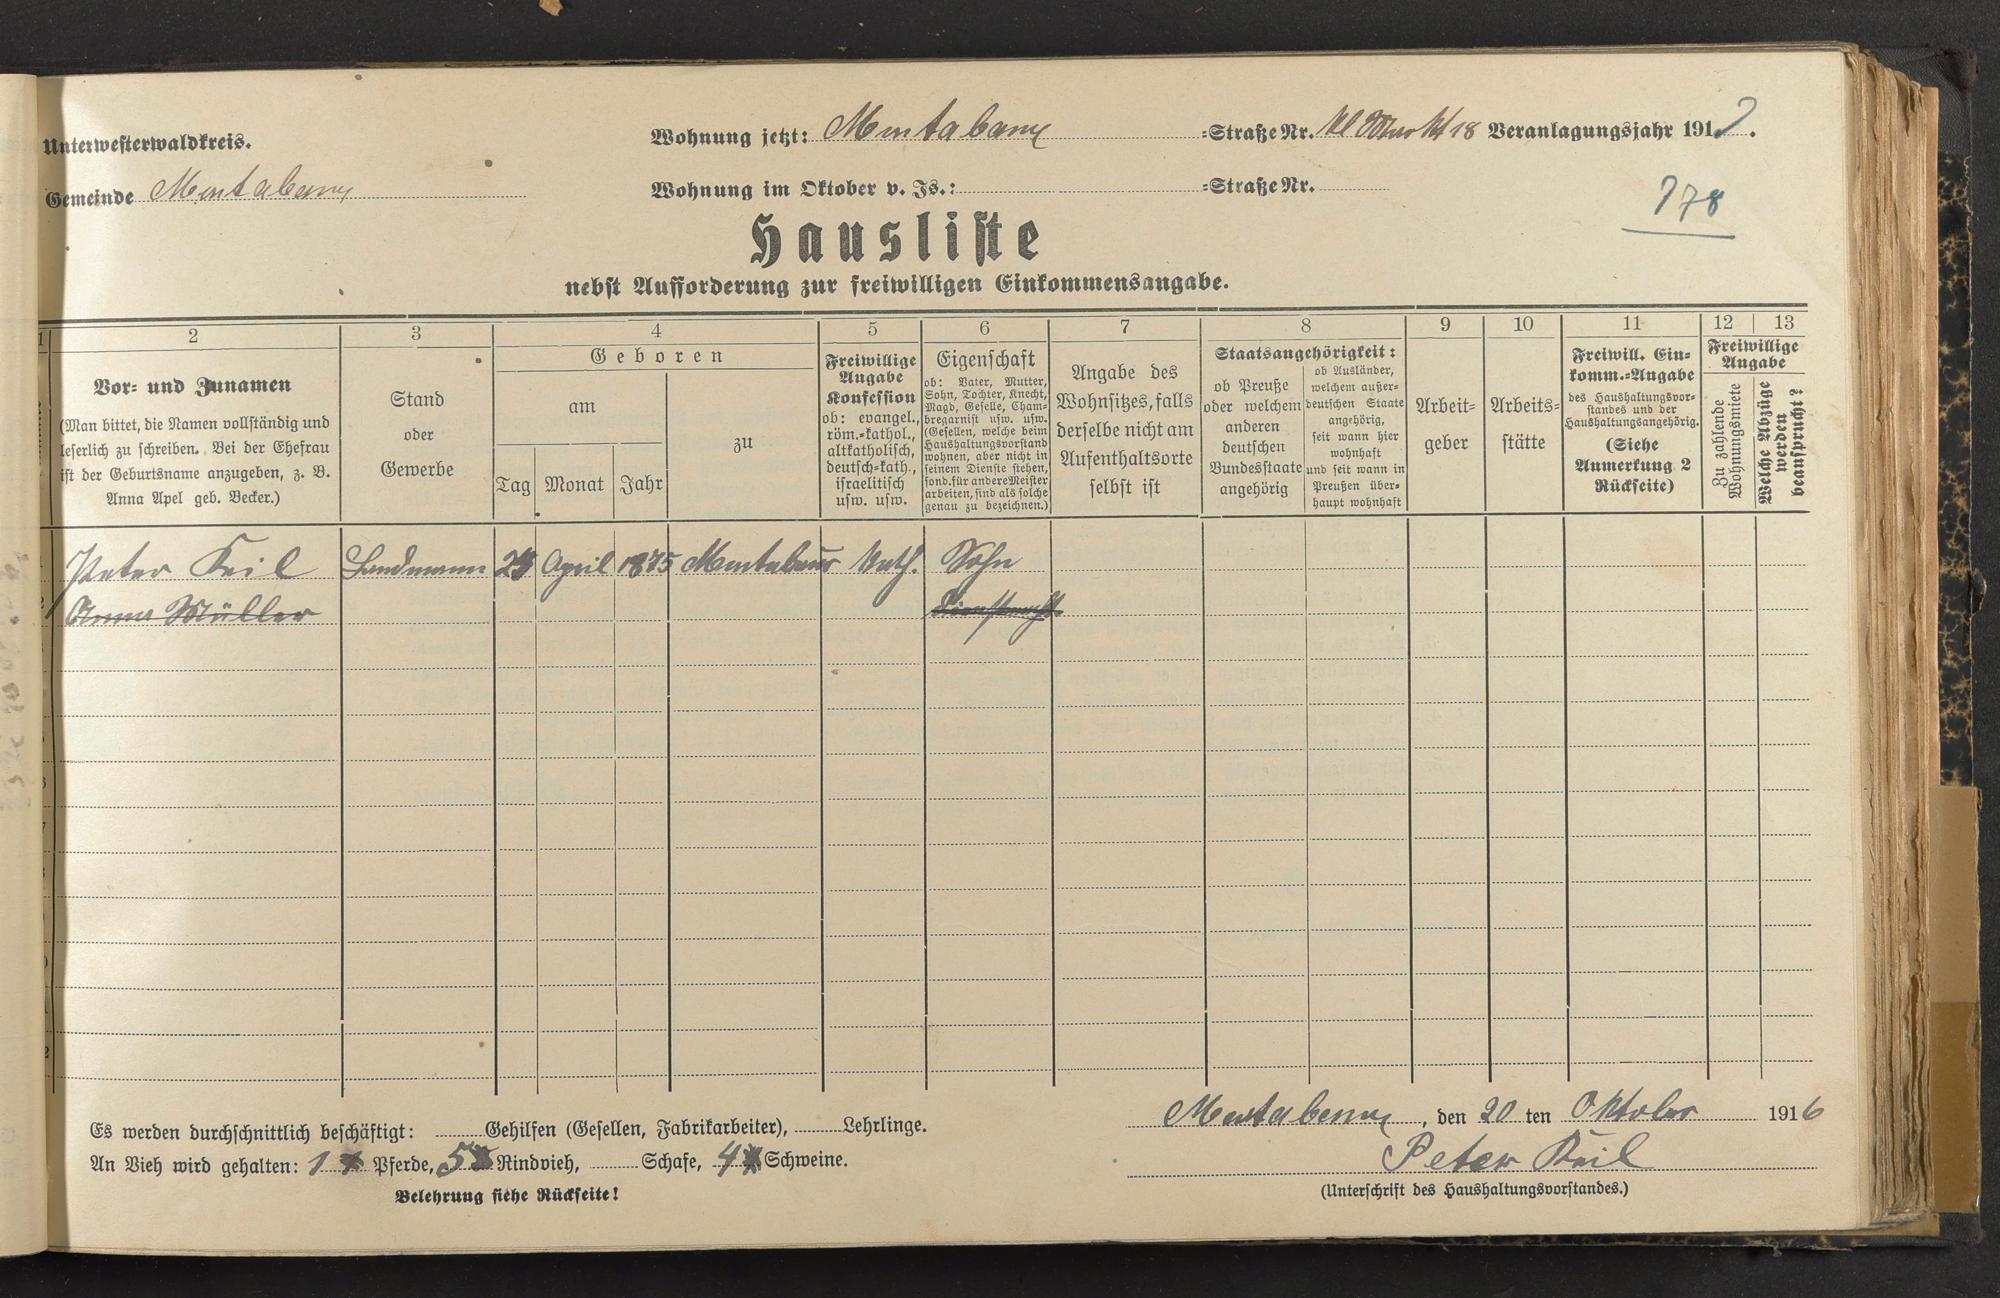 Unterwesterwaldkreis.
Wohnung jetzt: Montabaur =Straße Nr. Kl Markt 18 Veranlagungsjahr 1917.
Gemeinde Montabaur
Wohnung im Oktober v. Js.: =Straße Nr.
778
Hausliste
nebst Aufforderung zur freiwilligen Einkommensangabe.
1 2 3 4 5 6 7 8 9 10 11 12 13
Vor- und Zunamen
(Man bittet, die Namen vollständig und
leserlich zu schreiben. Bei der Ehefrau
ist der Geburtsname anzugeben, z. B.
Anna Apel geb. Becker.)
Stand
oder
Gewerbe
Geboren
am
Tag Monat Jahr
zu
Freiwillige
Angabe
Konfession
ob: evangel.,
röm.-kathol.,
altkatholisch,
deutsch-kath.,
israelitisch
usw. usw.
Eigenschaft
ob: Vater, Mutter,
Sohn, Tochter, Knecht,
Magd, Geselle, Cham-
bregarnist usw. usw.
(Gesellen, welche beim
Haushaltungsvorstand
wohnen, aber nicht in
seinem Dienste stehen,
sond. für andere Meister
arbeiten, sind als solche
genau zu bezeichnen.)
Angabe des
Wohnsitzes, falls
derselbe nicht am
Aufenthaltsorte
selbst ist
Staatsangehörigkeit:
ob Preuße
oder welchem
anderen
deutschen
Bundesstaate
angehörig
ob Ausländer,
welchem außer-
deutschen Staate
angehörig,
seit wann hier
wohnhaft
und seit wann in
Preußen über-
haupt wohnhaft
Arbeit-
geber
Arbeits-
stätte
Freiwill. Ein-
komm.-Angabe
des Haushaltungsvor-
standes und der
Haushaltungsangehörig.
(Siehe
Anmerkung 2
Rückseite)
Freiwillige
Angabe
Zu zahlende
Wohnungsmiete
Welche Abzüge
werden
beansprucht?
Peter Keil Landmann April 1875 Montabaur Kath. Sohn
Anna Müller
Es werden durchschnittlich beschäftigt: Gehilfen (Gesellen, Fabrikarbeiter), Lehrlinge.
An Vieh wird gehalten: 1 Pferde, 5 Rindvieh, Schafe, 4 Schweine.
Belehrung siehe Rückseite!
Montabaur, den 20 ten Oktober 1916
Peter Keil
(Unterschrift des Haushaltungsvorstandes.)